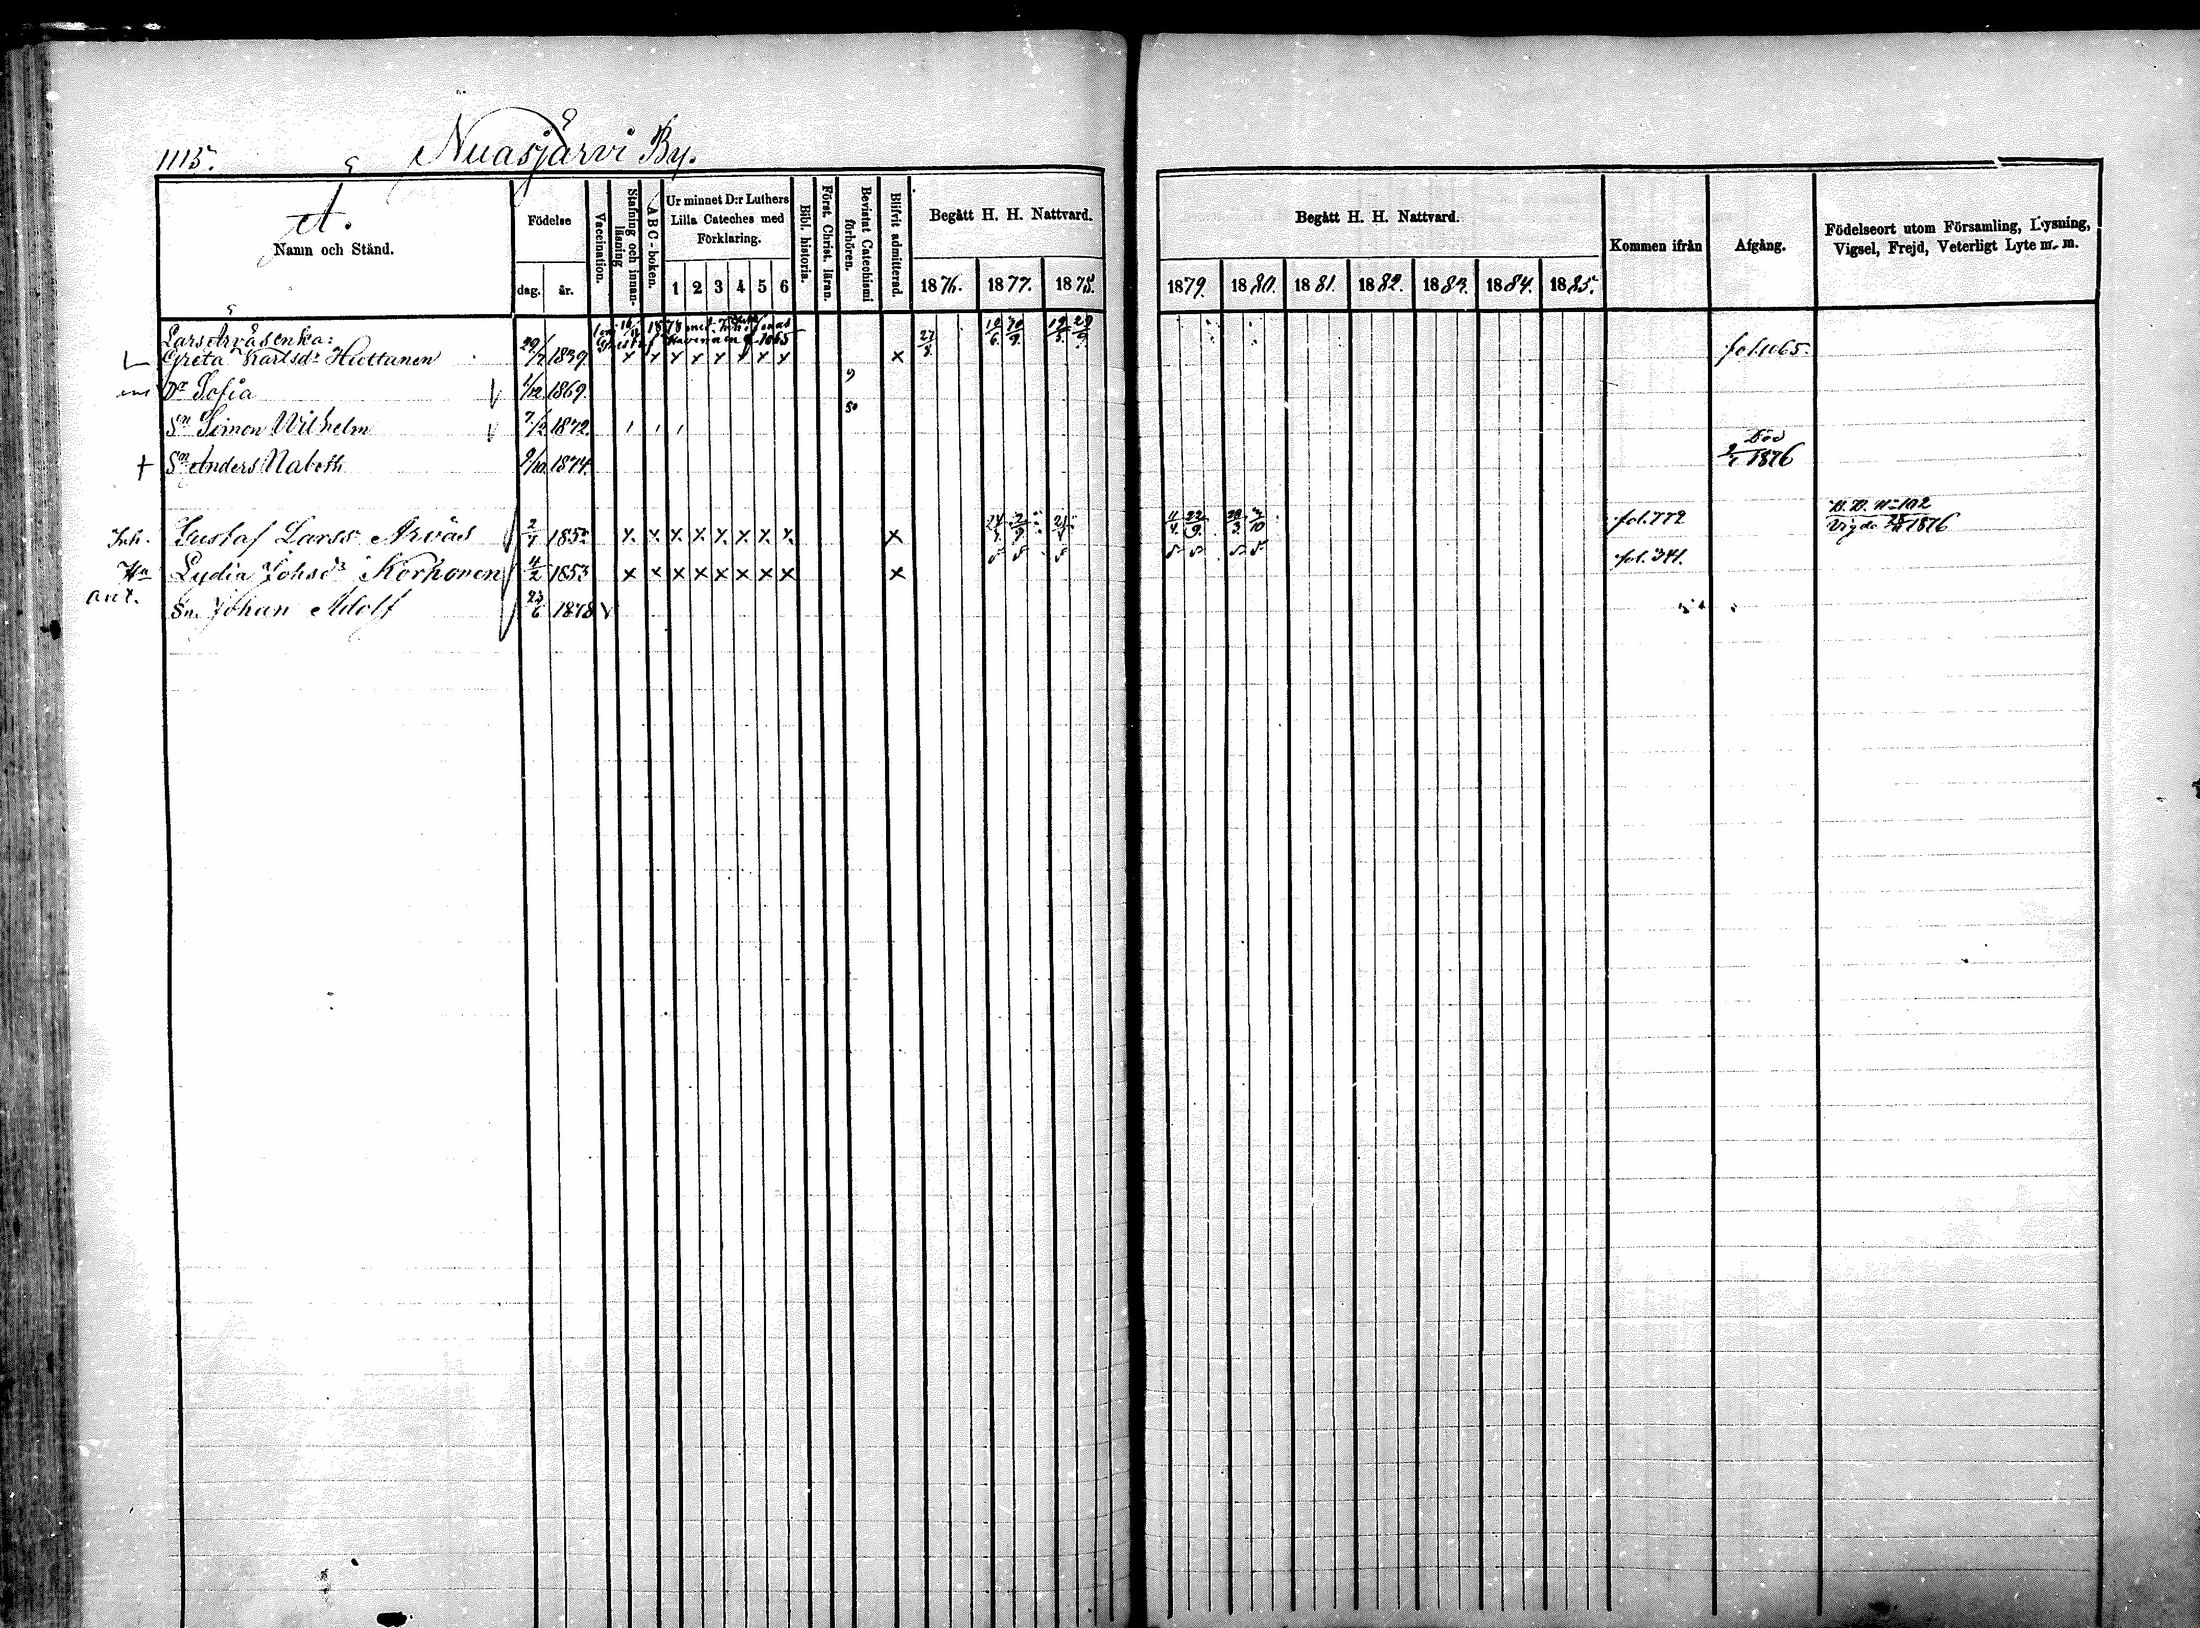 1115.
Nuasjärvi By.
A.
Namn och Stånd.
Födelse
dag. år.
Vaccination.
Stafning och innan-läsning
ABC-boken.
Ur minnet D:r Luthers
Lilla Cateches med
Förklaring.
1 2 3 4 5 6
Bibl. historia.
Först. Christ. läran.
Bevistat Catechismi förhören.
Blifvit admitterad.
Begått H. H. Nattvard.
1876. 1877. 1878.
Begått H. H. Nattvard.
1879. 1880. 1881. 1882. 1883. 1884. 1885.
Kommen ifrån
Afgång.
Födelseort utom Församling, Lysning,
Vigsel, Frejd, Veterligt Lyte m. m.
Lars Arvås enka: 1878 med Jonas
Greta Karlsdr Huttanen 29/7 1839 x x x x x x x x x 27/8 10/6 fol. 1065.
Dr Sofia 1/12 1869 9
Sn Simon Wilhelm 7/2 1872 50
† Sn Anders Naboth 9/10 1874 Död 2/1 1876
Inh. Gustaf Larss. Arvås 2/1 1852 x x x x x x x x x 11/4 22/9 fol. 772 Vigde 1876
Hu Lydia Johsdr Korhonen 4/2 1853 x x x x x x x x x fol. 341.
ant. Sn. Johan Adolf 23/6 1878 v